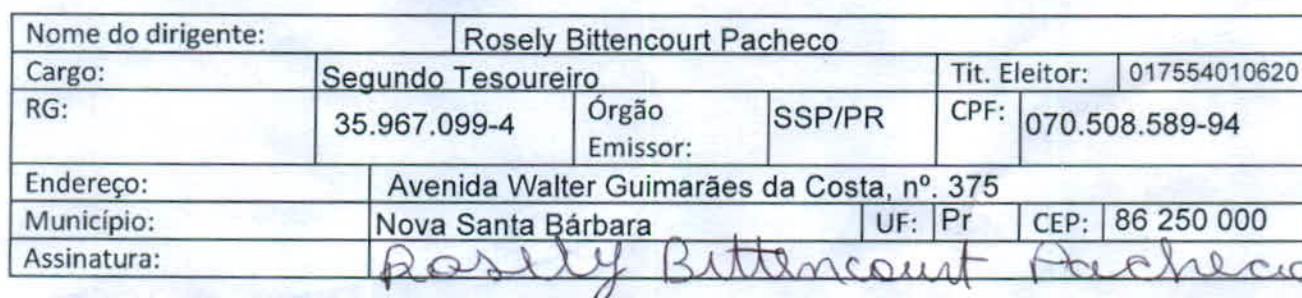 Nome do dirigente: Rosely Bittencourt Pacheco
Cargo: Segundo Tesoureiro Tit. Eleitor: 017554010620
RG: 35.967.099-4 Órgão Emissor: SSP/PR CPF: 070.508.589-94
Endereço: Avenida Walter Guimarães da Costa, nº. 375
Município: Nova Santa Bárbara UF: Pr CEP: 86 250 000
Assinatura: Rosely Bittencourt Pacheco